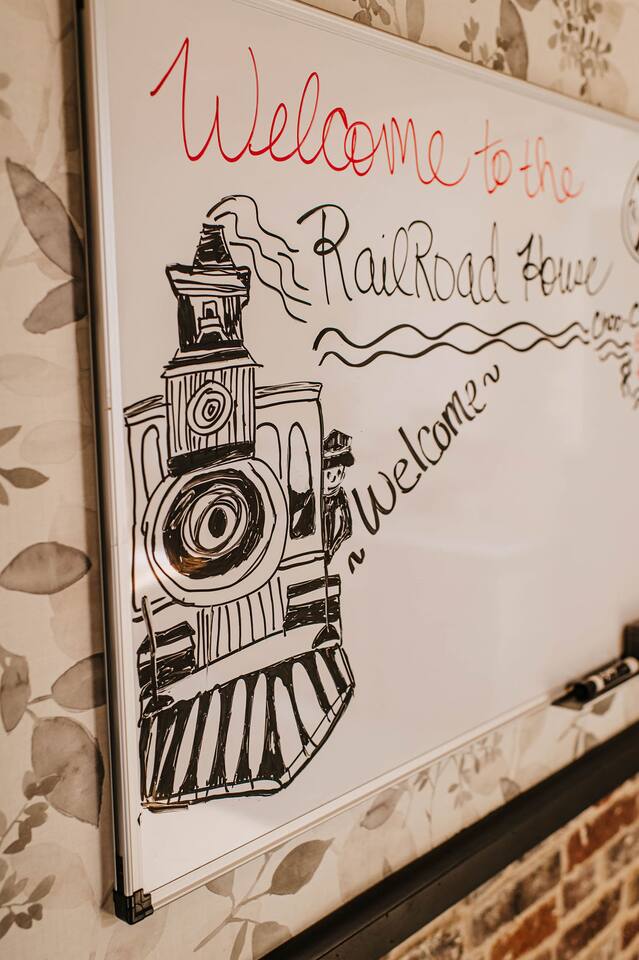 Welcome to the
RailRoad House
~Welcome~